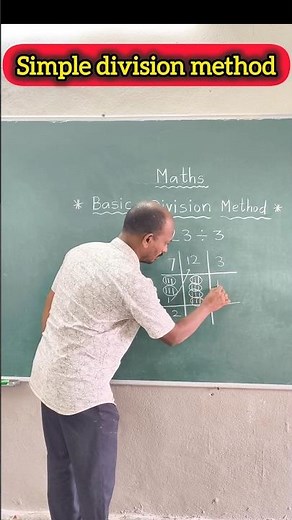 Simple division method
Maths
* Basic Division Method *
23 ÷ 3
7 | 12 | 3
2